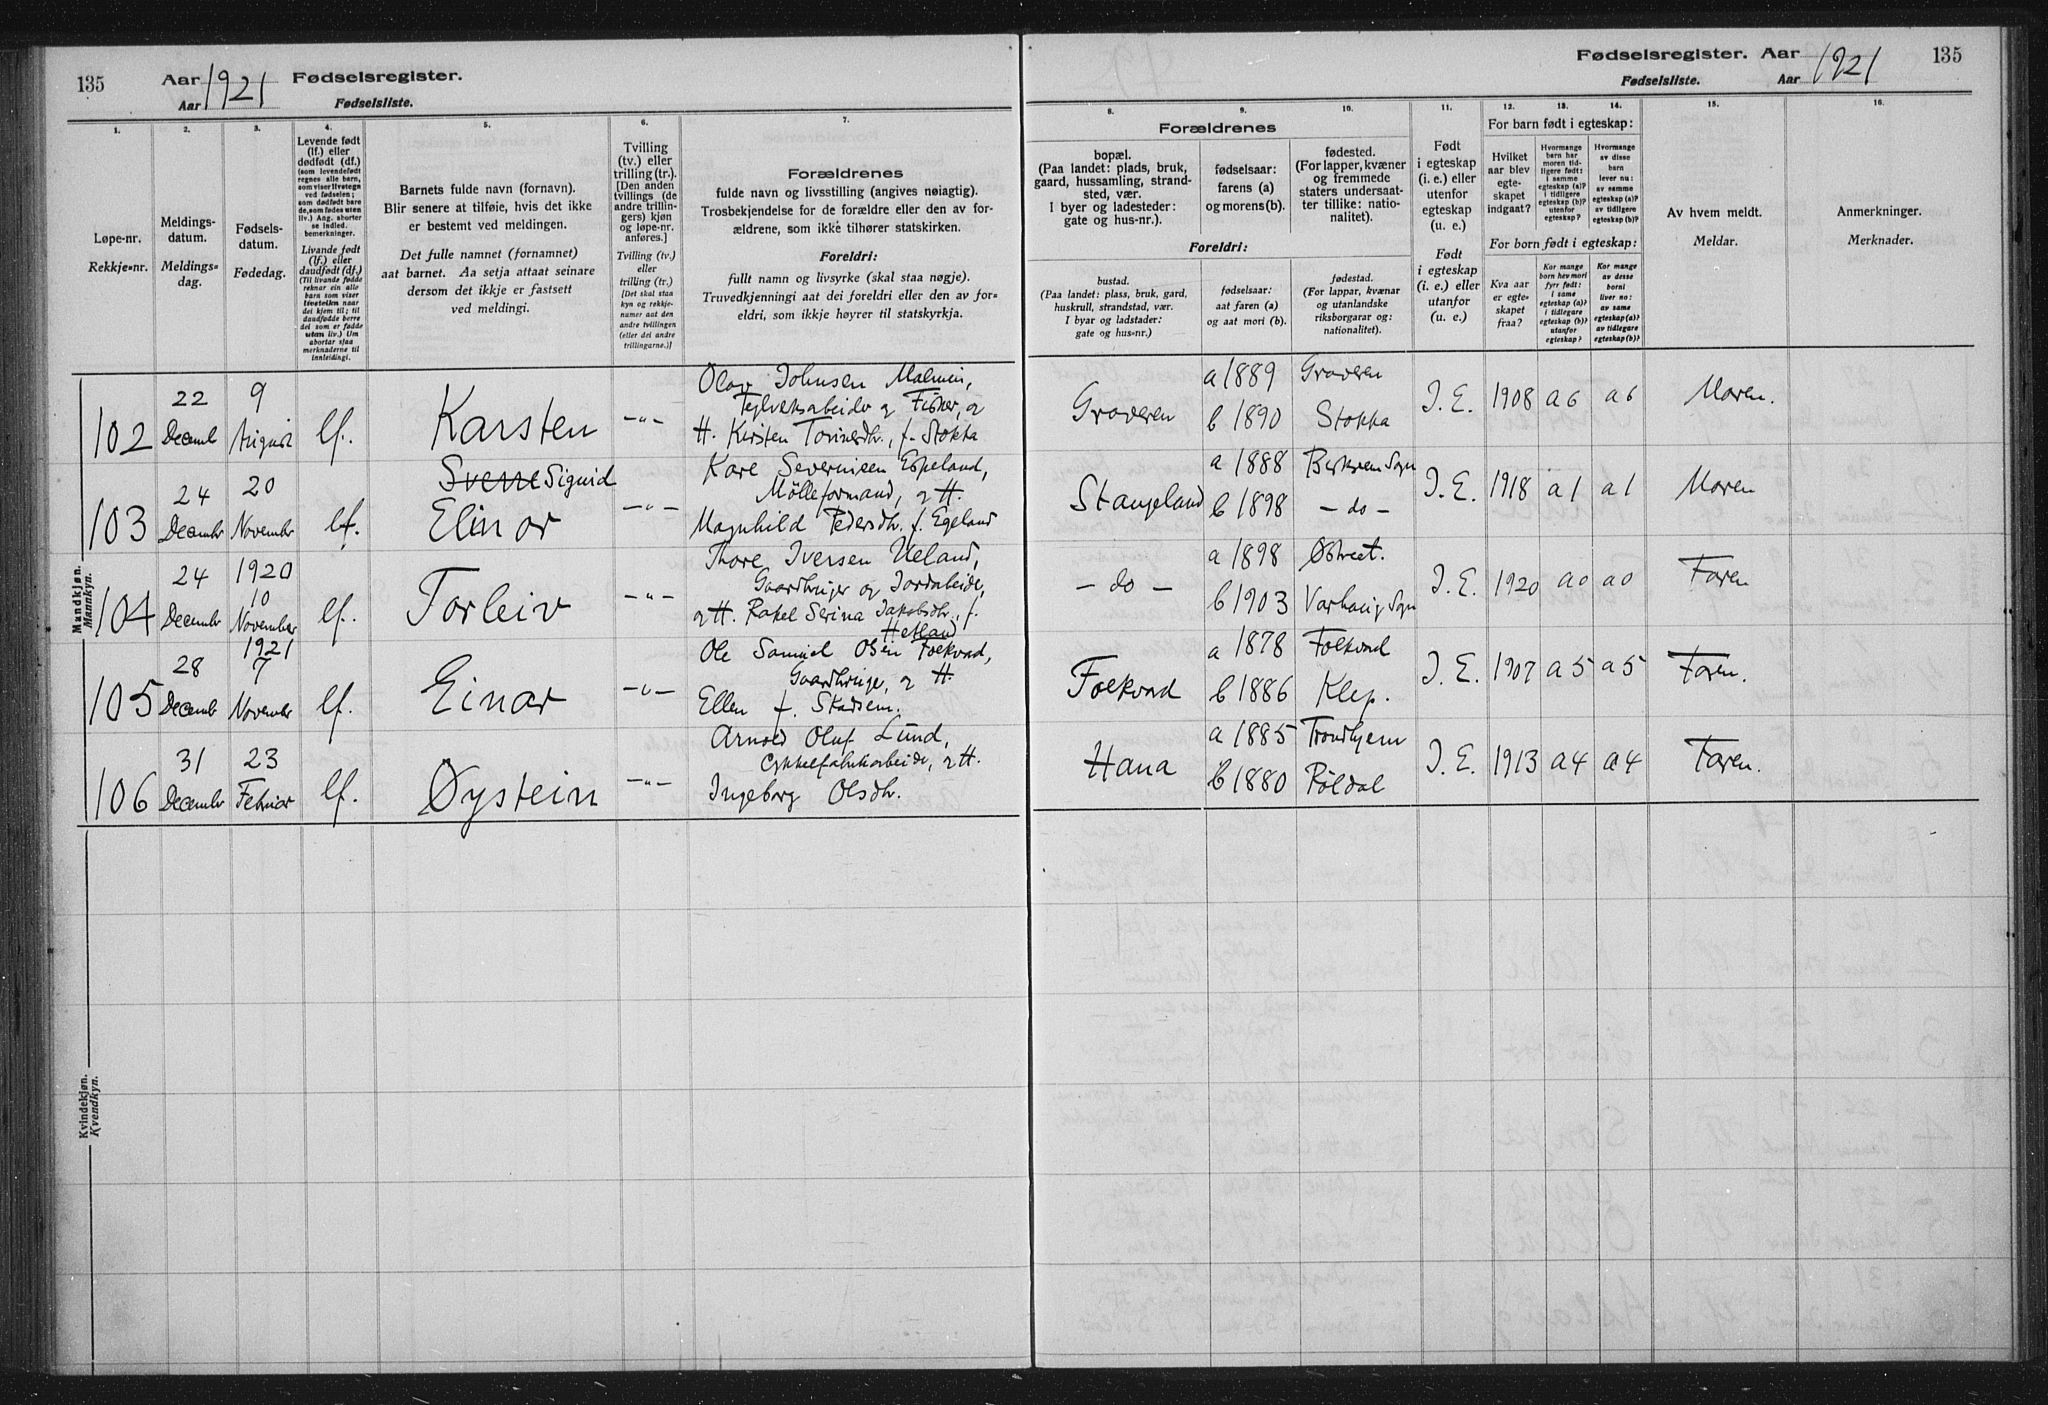 135
Aar 1921 Fødselsregister.
Aar Fødselsliste.
1.
Løpe-nr.
Rekkje=nr.
2.
Meldings-
datum.
Meldings-
dag.
3.
Fødsels-
datum.
Fødedag.
4.
Levende født
(lf.) eller
dødfødt (df.)
(som levendefødt
regnes alle barn,
som viser livstegn
ved fødselen;
som dødfødt bare
de, som fødes uten
liv.) Ang. aborter
se indled.
bemerkninger.
Livande født
(lf.) eller
daudfødt (df.)
(Til livande fødde
reknar ein alle
barn som viser
livsteikn naar
dei kjem til; til
daudfødde berre
dei som er fødde
utan liv.) Um
abortar sjaa
merknaderne til
innleidingi.
5.
Barnets fulde navn (fornavn).
Blir senere at tilføie, hvis det ikke
er bestemt ved meldingen.
Det fulle namnet (fornamnet)
aat barnet. Aa setja attaat seinare
dersom det ikkje er fastsett
ved meldingi.
6.
Tvilling
(tv.) eller
trilling (tr.).
[Den anden
tvillings (de
andre trillin-
gers) kjøn
og løpe-nr.
anføres.]
Tvilling (tv.)
eller
trilling (tr.)
[Det skal staa
kyn og rekkje-
numer aat den
andre tvillingen
(eller dei andre
trillingarne.)]
7.
Forældrenes
fulde navn og livsstilling (angives nøiagtig).
Trosbekjendelse for de forældre eller den av for-
ældrene, som ikke tilhører statskirken.
Foreldri:
fullt namn og livsyrke (skal staa nøgje).
Truvedkjenningi aat dei foreldri eller den av for=
eldri, som ikkje høyrer til statskyrkja.
Mandkjøn.
Mannkyn.
102
22
Decemb
9
August
lf.
Karsten
-"-
Olav Johnsen Malmin,
Teglverksarbeider og Fisker, og
H. Kirsten Torinesdtr., f. Stokka
103
24
Decembr
20
November
lf.
Sverre Sigurd
Elinar
-"-
Kare Severinsen Espeland,
Mølleformand, og H.
Magnhild Pedersdtr. f. Egeland
104
24
Decembr
1920
10
November
lf.
Torleiv
-"-
Thore Iversen Ueland,
Gaardbruger og Jordarbeide,
og H. Rakel Serina Jakobsdtr., f.
Hetland
105
28
Decemb
1921
7
November
lf.
Einar
-"-
Ole Samuel Olsen Folkvord,
Gaardbruge, og H.
Ellen f. Skadsem.
106
31
Decembr
23
Februar
lf.
Øystein
-"-
Arnold Oluf Lund,
Cykkelfabrikarbeide, og H.
Ingeborg Olsdtr.
Kvindekjøn.
Kvendkyn.
Fødselsregister. Aar 1921
Fødselsliste. Aar
135
8.
Forældrenes
bopæl.
(Paa landet: plads, bruk,
gaard, hussamling, strand-
sted, vær.
I byer og ladesteder:
gate og hus-nr.)
Foreldri:
bustad.
(Paa landet: plass, bruk, gard,
huskrull, strandstad, vær.
I byar og ladstader:
gate og hus-nr.)
9.
fødselsaar:
farens (a)
og morens (b).
fødselsaar:
aat faren (a)
og aat mori (b).
10.
fødested.
(For lapper, kvæner
og fremmede
staters undersaat-
ter tillike: natio-
nalitet).
fødestad.
(For lappar, kvænar
og utanlandske
riksborgarar og:
nationalitet).
11.
Født
i egteskap
(i. e.) eller
utenfor
egteskap
(u. e.)
Født
i egteskap
(i. e.) eller
utanfor
(u. e.)
For barn født i egteskap:
12.
Hvilket
aar blev
egte-
skapet
indgaat?
13.
Hvormange
barn har
moren tid-
ligere født:
i samme
egteskap (a)?
i tidligere
egteskap (b)?
utenfor
egteskap?
14.
Hvormange
av disse
barn
lever nu:
av samme
egteskap (a)?
av tidligere
egteskap (b)?
For born født i egteskap:
Kva aar
er egte-
skapet
fraa?
Kor mange
born hev mori
fyrr født:
i same
egteskap (a)?
i tidlegare
egteskap (b)?
utanfor
egteskap?
Kor mange
av desse
borni
liver no:
av same
egteskap (a)?
av tidlegare
egteskap (b)?
15.
Av hvem meldt.
Meldar.
16.
Anmerkninger.
Merknader.
Graveren
a 1889
b 1890
Graveren
Stokka
I. E.
1908
a 6
a 6
Moren.
Stangeland
a 1888
b 1898
Bjerkrem Sogn
- do -
I. E.
1918
a 1
a 1
Moren
- do -
a 1898
b 1903
Varhaug Sogn
I. E.
1920
a 0
a 0
Faren
Folkvord
a 1878
b 1886
Folkvord
Klep.
I. E.
1907
a 5
a 5
Faren.
Hana
a 1885
b 1880
Trondhjem
Røldal
I. E.
1913
a 4
a 4
Faren.